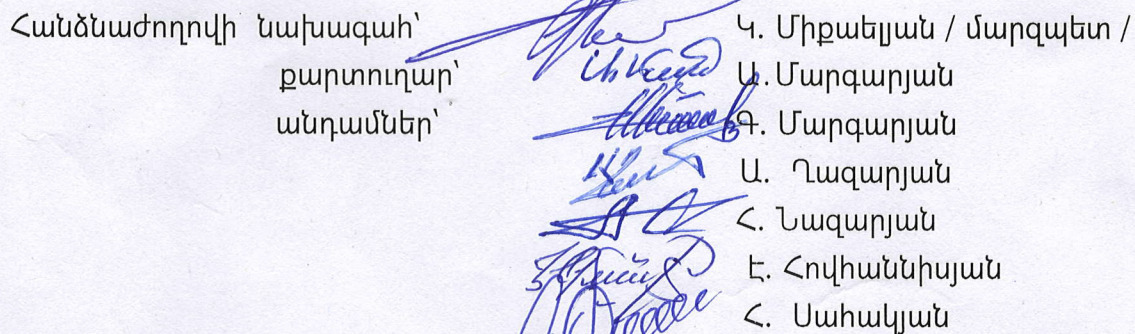 Հանձնաժողովի նախագահ՝ Կ. Միքաելյան / մարզպետ /
քարտուղար՝ Ա. Մարգարյան
անդամներ՝ Գ. Մարգարյան
Ա. Ղազարյան
Հ. Նազարյան
Է. Հովհաննիսյան
Հ. Սահակյան